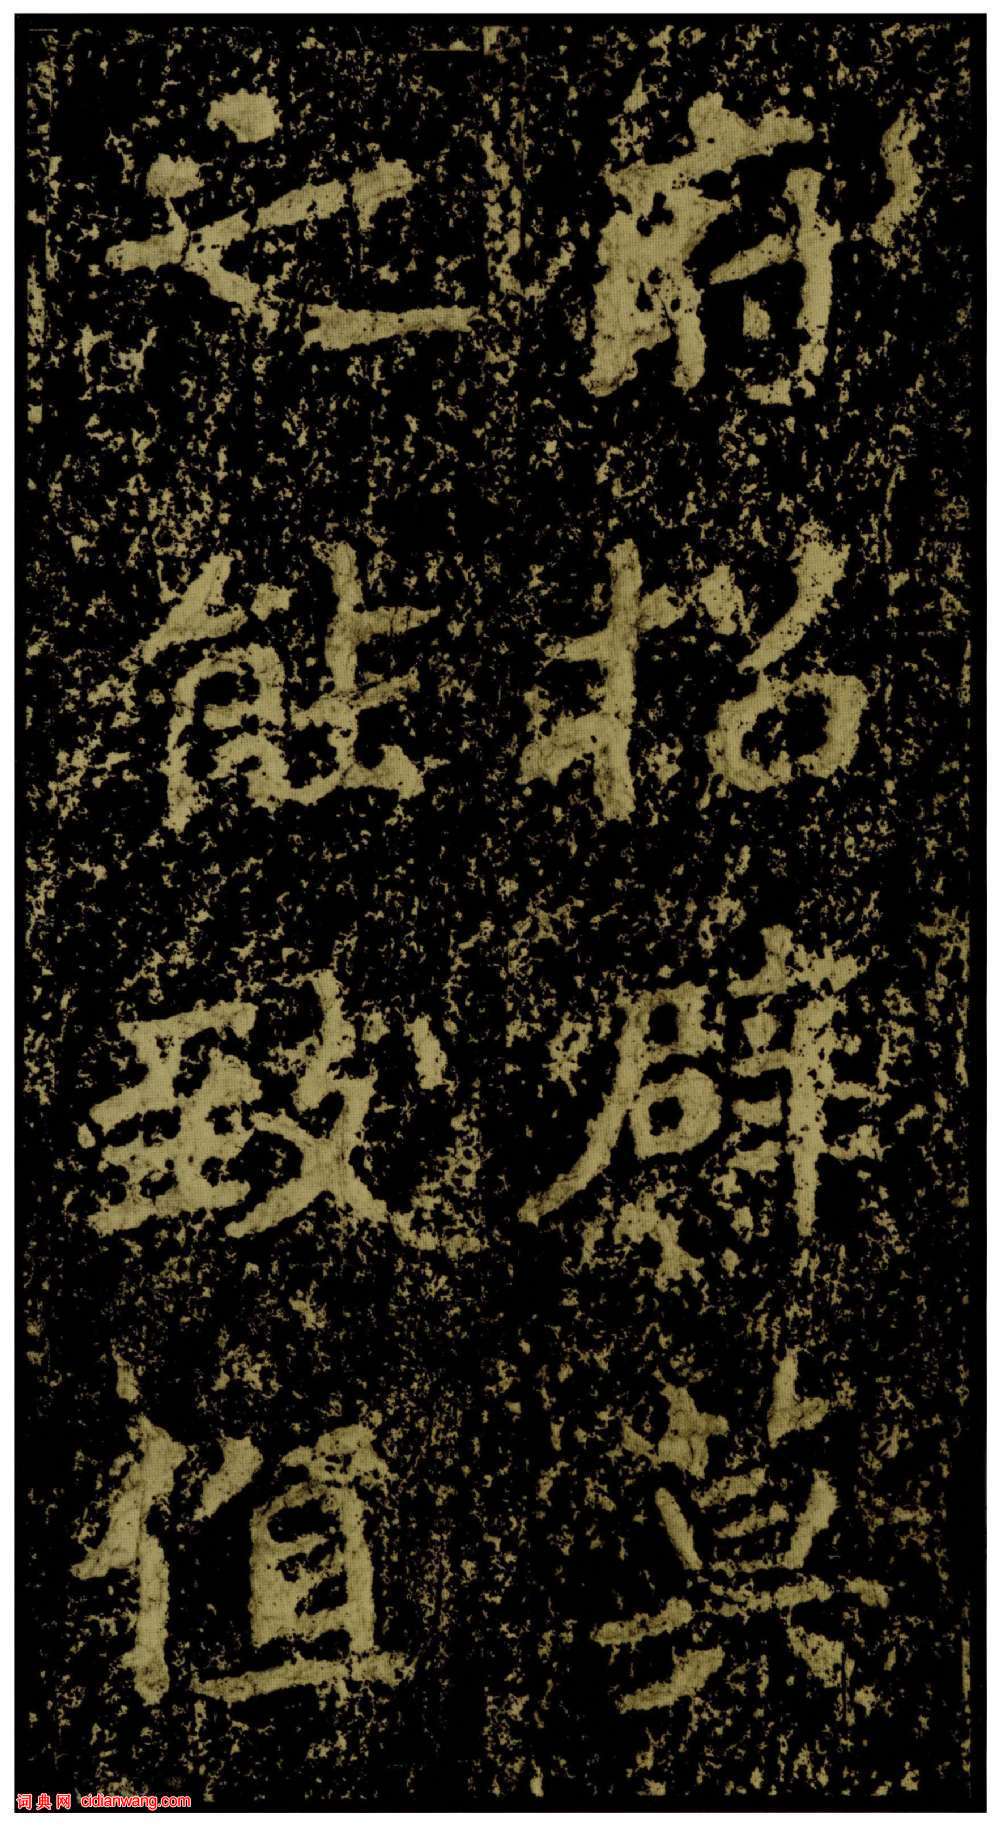 府招辟莫
之能致值
词典网 cidianwang.com